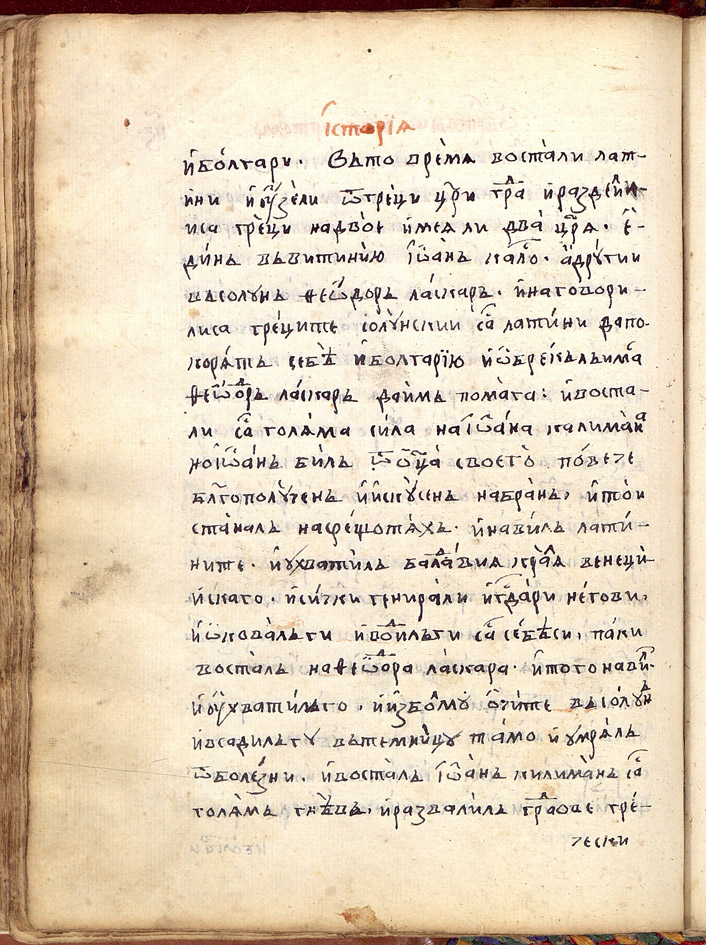 їсторїѧ
и҆бо́лгари. Въто врѐмѧ воста́ли лат-
и́ни и҆ ꙋ҆зѐли ѿгрѐци цр҃и гра҃ и҆разде́ли-
лиса грѐци надво́е и҆мѐѧли два̀ цр҃ѧ. є҆-
ди́нь вьвитинїю і҆ѡ҆а́нь кало̀. а҆дрꙋ́гии
въсолꙋнь ѳеѡ́дорь ла́скарь. и҆наговори-
лиса грѐците со́лꙋнскии са̀ латѝни дапо-
корѧ́ть себѣ̀ и҆болгарїю и҆ѡ҆брекъльима
ѳеѡ́дорь ла́скарь даимь помага: и҆воста-
ли са̀ голѧ́ма си́ла наі҆ѡ҆а́на калима́на
ноі҆ѡ҆а́нь биль ѿѻ҆ц҃а̀ своего̀ по́вече
бл҃гополꙋ́чень и҆и҆скꙋ́сень набра́нь, и҆то́и
ста́наль насре́щотѧ́хь. и҆нави́ль лати́-
ните. и҆ꙋхвати́ль балдавиѧ кралѧ венеци-
и҆скаго. и҆си́чки генира́ли и҆гд҃ари не́гови,
и҆ѡ҆кова́льги и҆води́льги са̀ се́бѣси, паки
воста́ль наѳеѡ́дора ла́скара. и҆тогонави́л
и҆ꙋ҆хвати́льго, и҆и҆збо́лмꙋ ѻ҆чи́те въсолꙋ́нь
и҆всади́льгꙋ вьтемни́цꙋ та́мо и҆ ꙋмрѧ́ль
ѿболе́зни. и҆воста́ль і҆ѡ҆а́нь килима́нь са̀
голѧ́мь гнѣ́вь, и҆развали́ль гра́дове грѐ-
чески